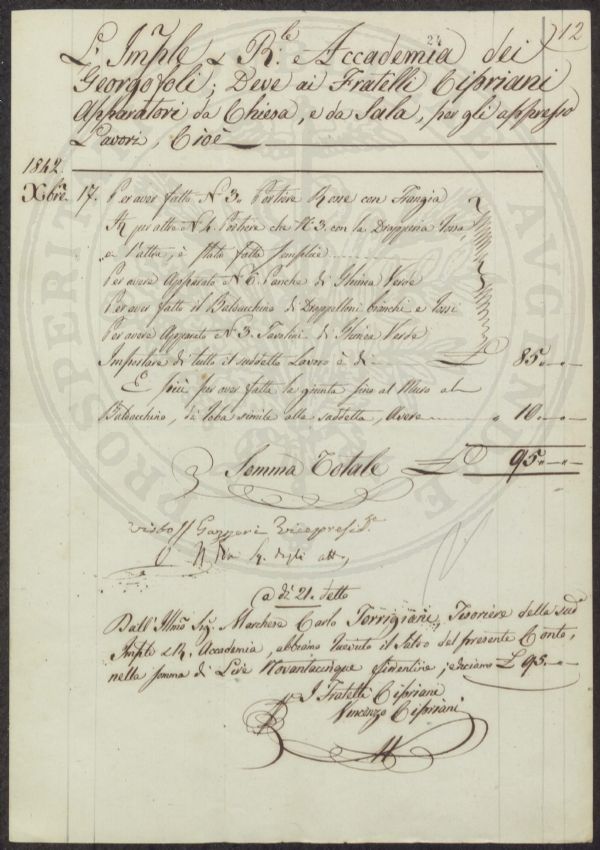 12
24
L'Imp̃le e R:le Accademia dei
Georgofoli; Deve ai Fratelli Cipriani
Apparatori da Chiesa, e da Sala, per gli appresso
Lavori, Cioè
1842
Xbre 17. Per aver fatto N 3. Portiere Rosse con Frangia
per altre N 4. Portiere che N: 3. con la Drapperia rossa,
e l'altra, è stata fatta semplice
Per avere Apparato N 6. Panche di Ghinea Verde
Per aver fatto il Baldacchino di Drappelloni bianchi e rossi
Per avere Apparato N 3. Tavolini di Ghinea Verde
Importare di tutto il suddetto Lavoro è di £ 85.
E più per aver fatta la giunta fino al Muro al
Baldacchino, di roba simile alla suddetta, Avere " 10.
Somma Totale £ 95.
Visto Gazzeri Vicepresid.e
degli att
a dì 21. detto
Dall'Illmo Sig. Marchese Carlo Torrigiani, Tesoriere della sudd
Imple e R. Accademia, abbiamo ricevuto il Saldo del presente Conto,
nella somma di Lire Novantacinque fiorentine; e diciamo £ 95
I Fratelli Cipriani
Vincenzo Cipriani
PROSPERITATI AUGENDAE